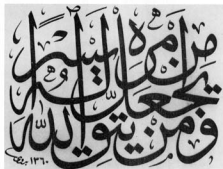 ومن يتق الله
يجعل له
من أمره يسرا
١٣٦٠